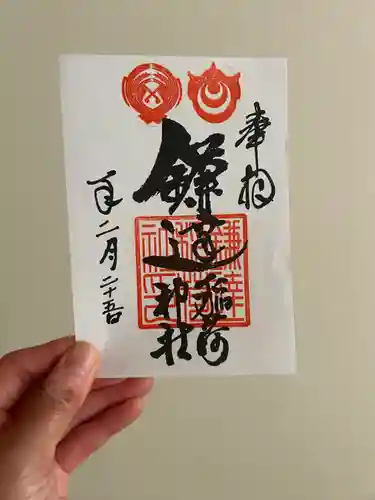 奉拝
鎌達
稲荷
神社
年二月二十五日